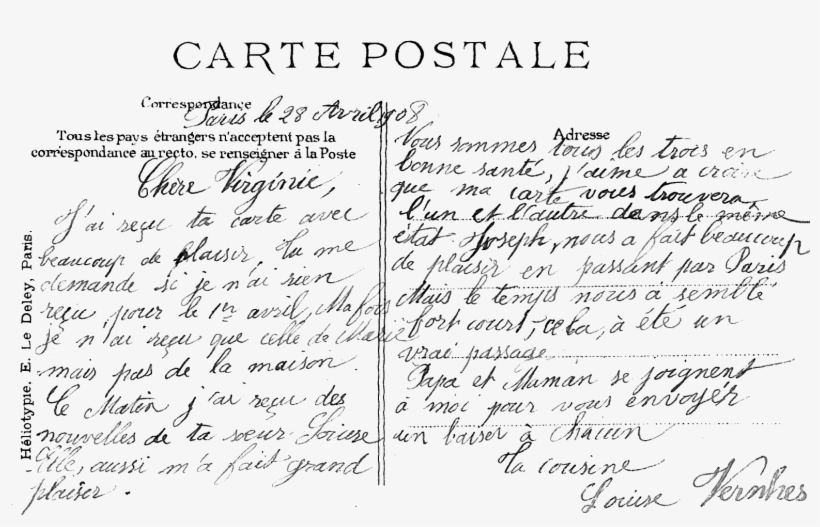 CARTE POSTALE
Correspondance
Paris le 28 Avril 1908
Tous les pays étrangers n'acceptent pas la
correspondance au recto, se renseigner à la Poste
Chère Virginie,
J'ai reçu ta carte avec
beaucoup de plaisir, Tu me
demande si je n'ai rien
reçu, pour le 1er avril, Ma fois
je n'ai reçu que celle de Marie
mais pas de la maison.
Ce Matin j'ai reçu des
nouvelles de ta sœur Louise
Elle, aussi m'a fait grand
plaisir.
Adresse
Nous sommes tous les trois en
bonne santé, j'aime a croire
que ma carte vous trouvera
l'un et l'autre dans le même
état. Joseph, nous a fait beaucoup
de plaisir en passant par Paris
Mais le temps nous à semblé
fort court, cela, à été un
vrai passage
Papa et Maman se joignent
à moi pour vous envoyer
un baiser à chacun
Ta cousine
Louise Vernhes
Héliotypie. E. Le Deley, Paris.